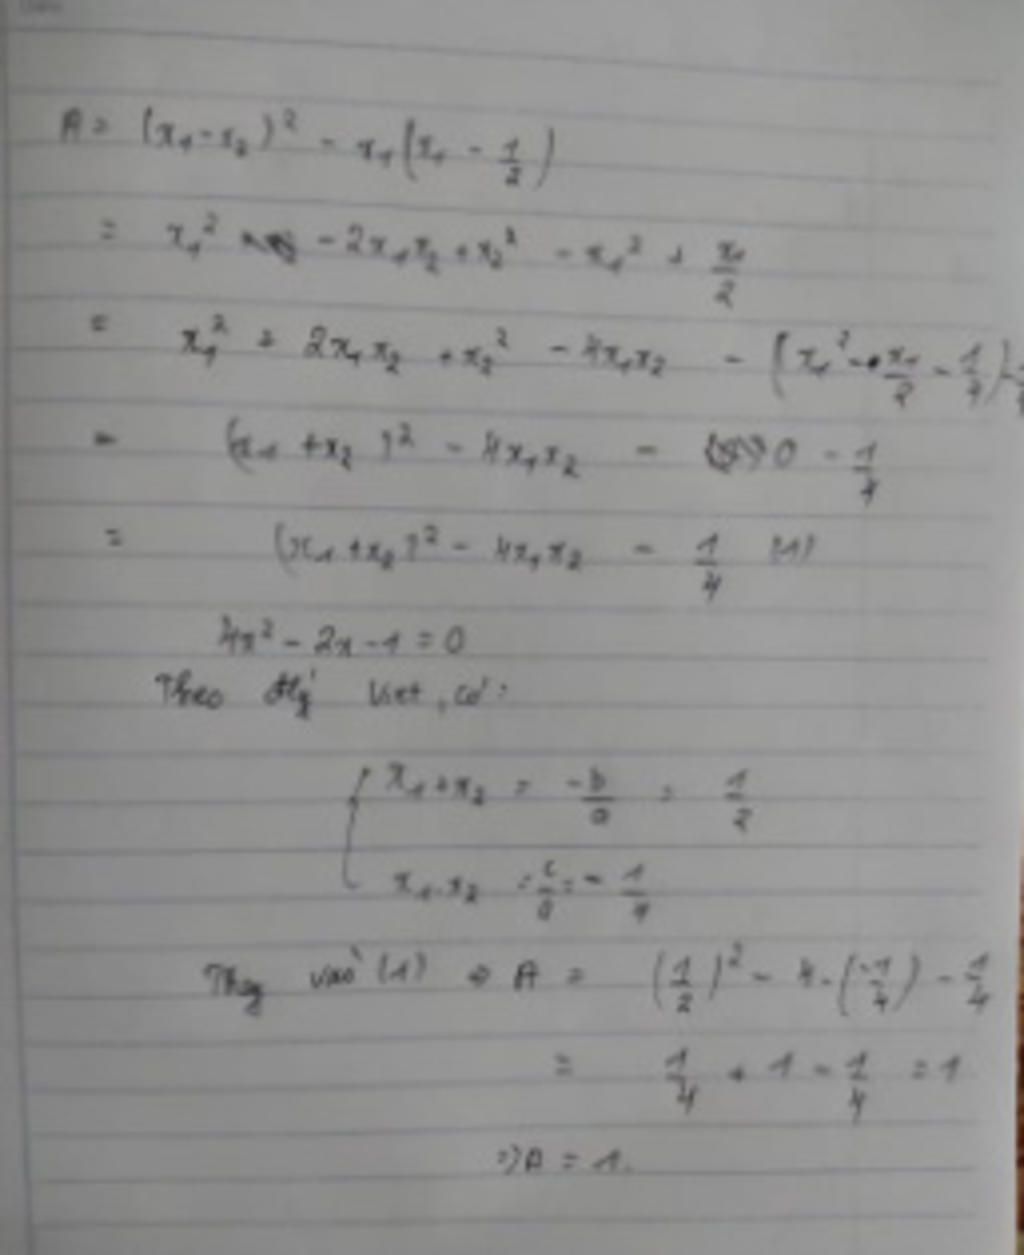 A = (x₁ - x₂)² - x₁(x₁ - 1/2)
= x₁² - 2x₁x₂ + x₂² - x₁² + x₁/2
= x₁² + 2x₁x₂ + x₂² - 4x₁x₂ - (x₁² - x₁/2 - 1/4) - 1/4
= (x₁ + x₂)² - 4x₁x₂ - 0 - 1/4
= (x₁ + x₂)² - 4x₁x₂ - 1/4 (1)
4x² - 2x - 1 = 0
Theo đlý Viet, có:
{ x₁ + x₂ = -b/a = 1/2
x₁.x₂ = c/a = -1/4
Thay vào (1) ⇒ A = (1/2)² - 4.(-1/4) - 1/4
= 1/4 + 1 - 1/4 = 1
=> A = 1.